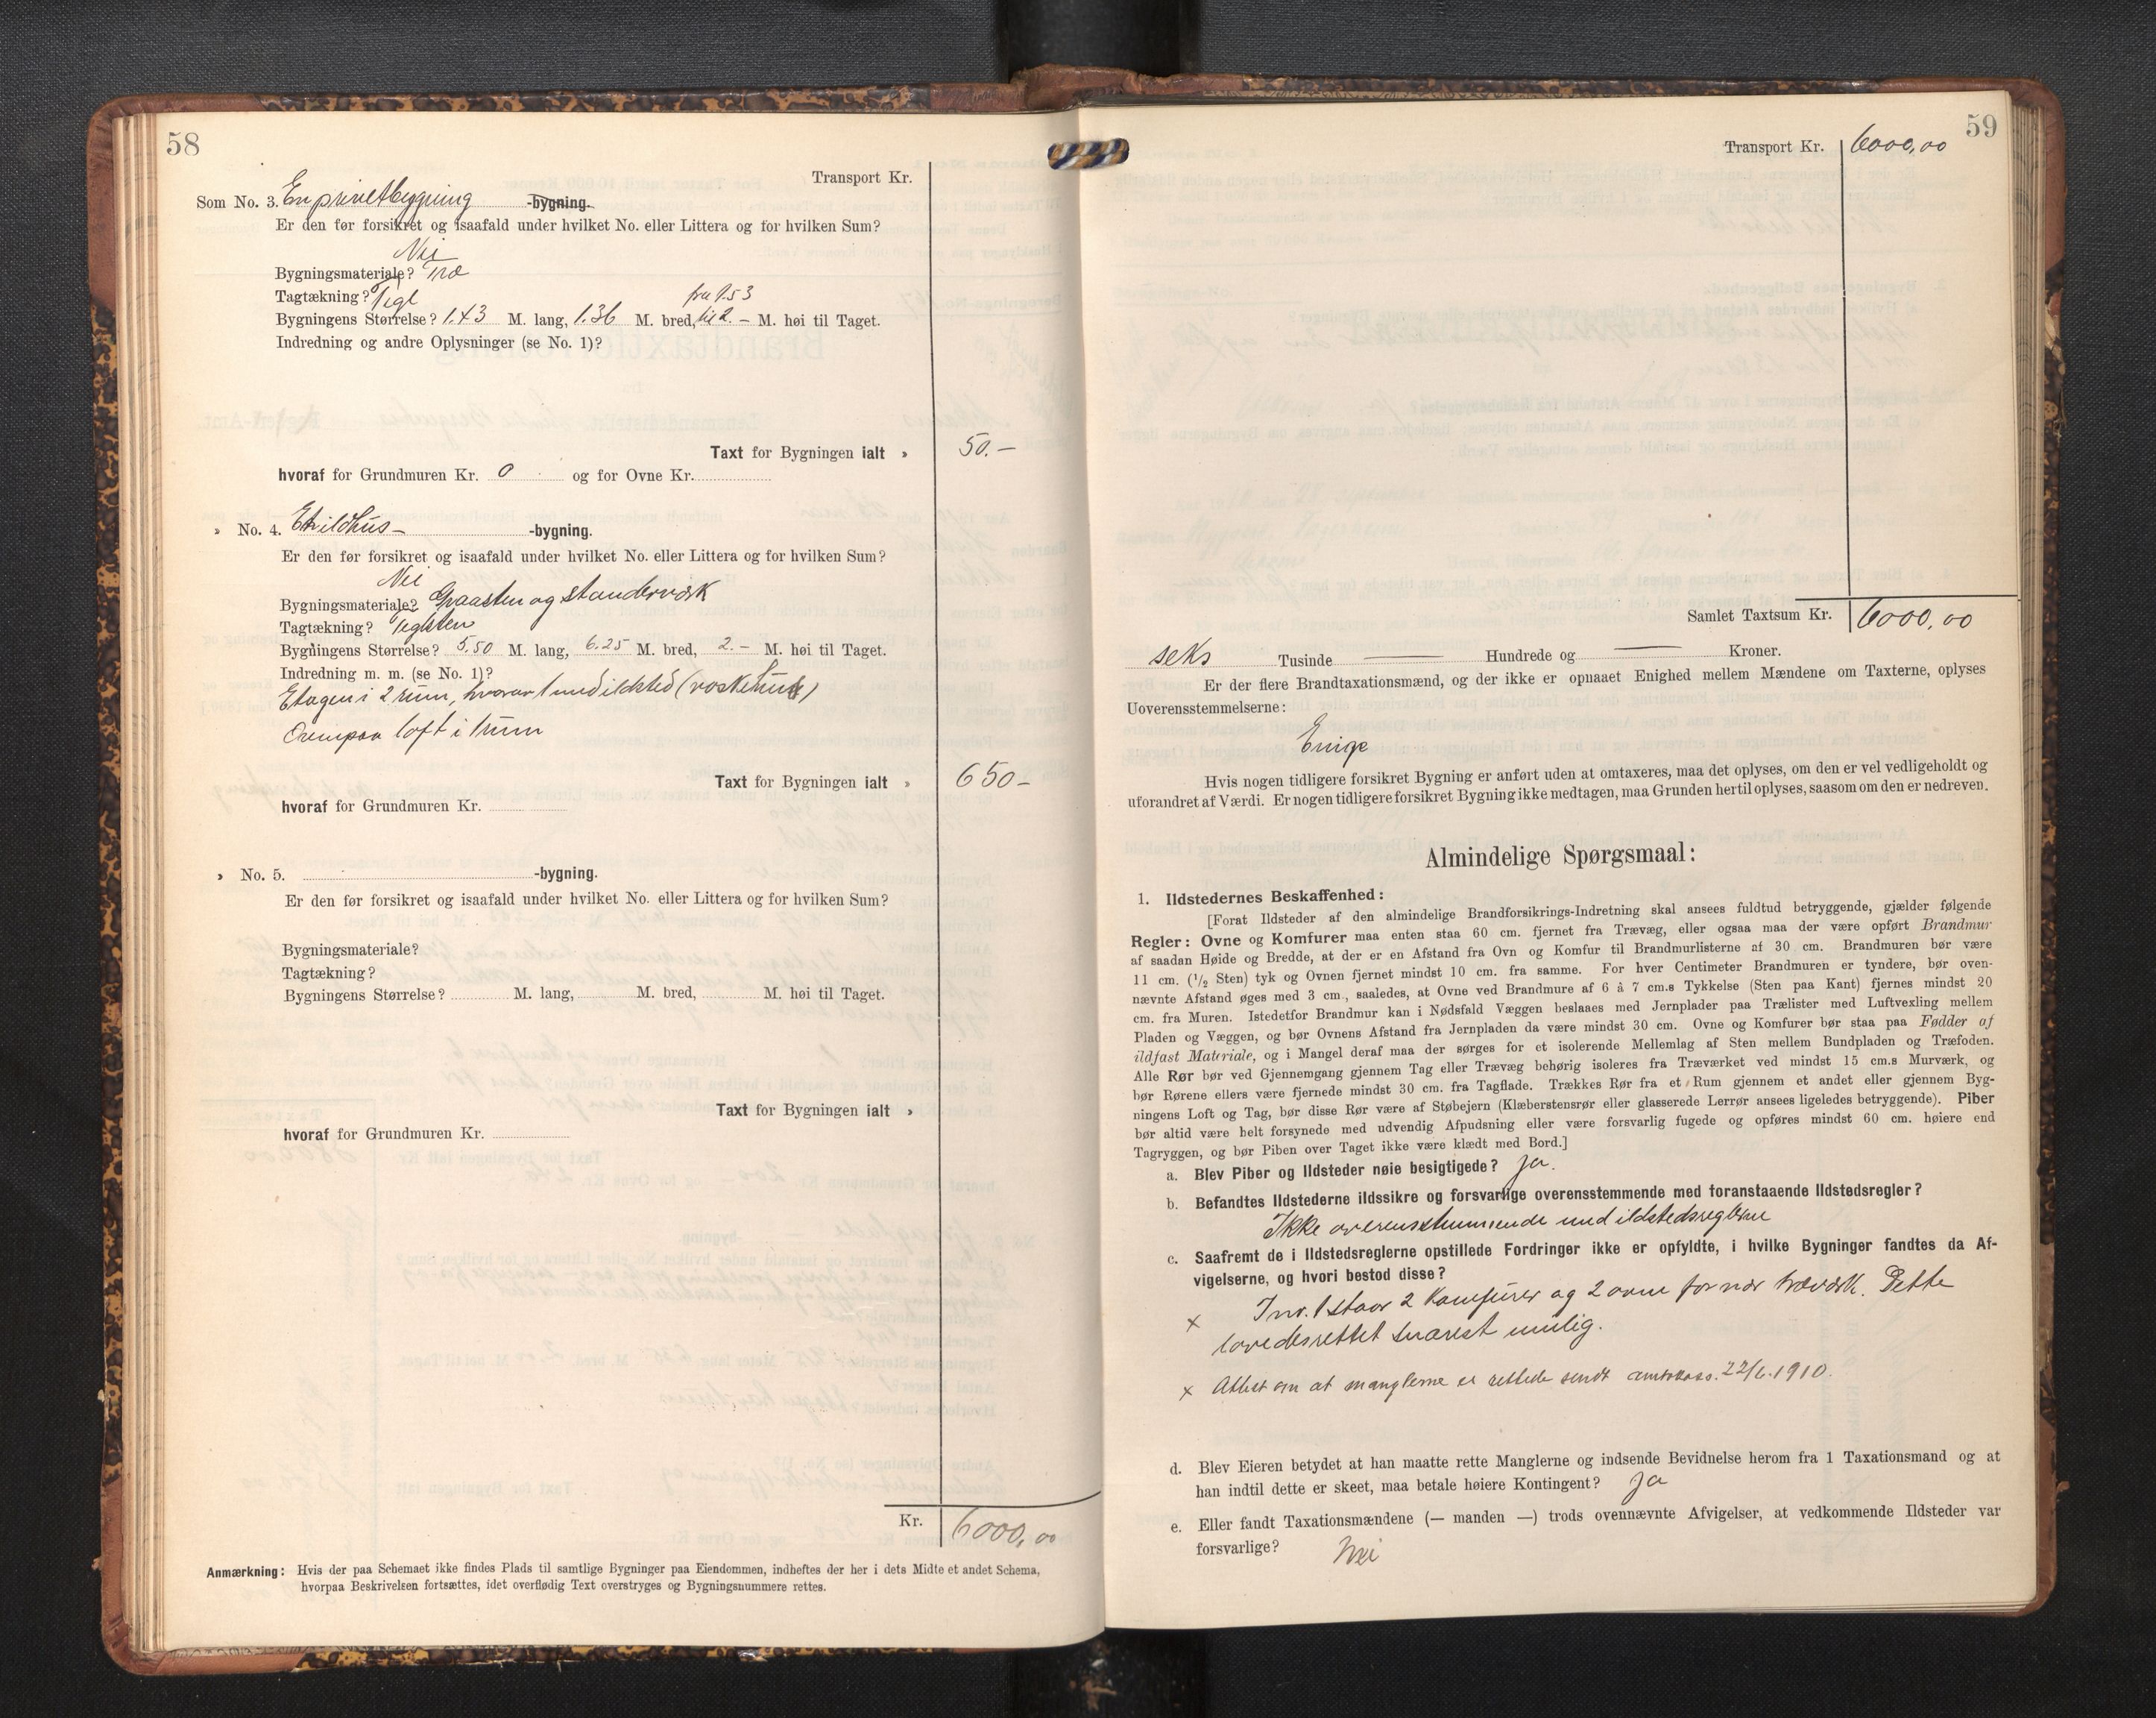 58
Transport Kr.
Som No. 3. En privetbygning -bygning.
Er den før forsikret og isaafald under hvilket No. eller Littera og for hvilken Sum?
Nei
Bygningsmateriale? Træ
Tagtækning? Tegl
fra 1.53
Bygningens Størrelse? 1.43 M. lang, 1.36 M. bred, til 2.– M. høi til Taget.
Indredning og andre Oplysninger (se No. 1)?
Taxt for Bygningen ialt » 50.–
hvoraf for Grundmuren Kr. 0 og for Ovne Kr.
» No. 4. Et ildhus– -bygning.
Er den før forsikret og isaafald under hvilket No. eller Littera og for hvilken Sum?
Nei
Bygningsmateriale? Graasten og standerværk
Tagtækning? Teglsten
Bygningens Størrelse? 5.50 M. lang, 6.25 M. bred, 2.– M. høi til Taget.
Indredning m. m. (se No. 1)?
Etagen i 2 rum, hvorav 1 med ildsted
Ovenpaa loft i 1 rum
Taxt for Bygningen ialt » 650–
hvoraf for Grundmuren Kr.
» No. 5. -bygning.
Er den før forsikret og isaafald under hvilket No. eller Littera og for hvilken Sum?
Bygningsmateriale?
Tagtækning?
Bygningens Størrelse? M. lang, M. bred, M. høi til Taget.
Taxt for Bygningen ialt »
hvoraf for Grundmuren Kr.
Kr. 6000,00
Anmærkning: Hvis der paa Schemaet ikke findes Plads til samtlige Bygninger paa Eiendommen, indheftes der her i dets Midte et andet Schema,
hvorpaa Beskrivelsen fortsættes, idet overflødig Text overstryges og Bygningsnummere rettes.
59
Transport Kr. 6000,00
Samlet Taxtsum Kr. 6000,00
seks Tusinde — Hundrede og — Kroner.
Er der flere Brandtaxationsmænd, og der ikke er opnaaet Enighed mellem Mændene om Taxterne, oplyses
Uoverensstemmelserne:
Enige
Hvis nogen tidligere forsikret Bygning er anført uden at omtaxeres, maa det oplyses, om den er vel vedligeholdt og
uforandret af Værdi. Er nogen tidligere forsikret Bygning ikke medtagen, maa Grunden hertil oplyses, saasom om den er nedreven.
Almindelige Spørgsmaal:
1. Ildstedernes Beskaffenhed:
[Forat Ildsteder af den almindelige Brandforsikrings-Indretning skal ansees fuldtud betryggende, gjælder følgende
Regler: Ovne og Komfurer maa enten staa 60 cm. fjernet fra Trævæg, eller ogsaa maa der være opført Brandmur
af saadan Høide og Bredde, at der er en Afstand fra Ovn og Komfur til Brandmurlisterne af 30 cm. Brandmuren bør være
11 cm. (1/2 Sten) tyk og Ovnen fjernet mindst 10 cm. fra samme. For hver Centimeter Brandmuren er tyndere, bør oven-
nævnte Afstand øges med 3 cm., saaledes, at Ovne ved Brandmure af 6 à 7 cm.s Tykkelse (Sten paa Kant) fjernes mindst 20
cm. fra Muren. Istedetfor Brandmur kan i Nødsfald Væggen beslaaes med Jernplader paa Trælister med Luftvexling mellem
Pladen og Væggen, og bør Ovnens Afstand fra Jernpladen da være mindst 30 cm. Ovne og Komfurer bør staa paa Fødder af
ildfast Materiale, og i Mangel deraf maa der sørges for et isolerende Mellemlag af Sten mellem Bundpladen og Træfoden.
Alle Rør bør ved Gjennemgang gjennem Tag eller Trævæg behørig isoleres fra Træværket ved mindst 15 cm.s Murværk, og
bør Rørene ellers være fjernede mindst 30 cm. fra Tagflade. Trækkes Rør fra et Rum gjennem et andet eller gjennem Byg-
ningens Loft og Tag, bør disse Rør være af Støbejern (Klæberstensrør eller glasserede Lerrør ansees ligeledes betryggende). Piber
bør altid være helt forsynede med udvendig Afpudsning eller være forsvarlig fugede og opføres mindst 60 cm. høiere end
Tagryggen, og bør Piben over Taget ikke være klædt med Bord.]
a. Blev Piber og Ildsteder nøie besigtigede? Ja.
b. Befandtes Ildstederne ildssikre og forsvarlige overensstemmende med foranstaaende Ildstedsregler?
Ikke overensstemmende med ildstedsreglerne
c. Saafremt de i Ildstedsreglerne opstillede Fordringer ikke er opfyldte, i hvilke Bygninger fandtes da Af-
vigelserne, og hvori bestod disse?
× I nr. 1 staar 2 komfurer og 2 ovne for nær træværk. Dette
lovedes rettet snarest mulig.
× Attest om at manglerne er rettede sendt 22/6.1910.
d. Blev Eieren betydet at han maatte rette Manglerne og indsende Bevidnelse herom fra 1 Taxationsmand og at
han indtil dette er skeet, maa betale høiere Kontingent? Ja
e. Eller fandt Taxationsmændene (— manden —) trods ovennævnte Afvigelser, at vedkommende Ildsteder var
forsvarlige? Nei